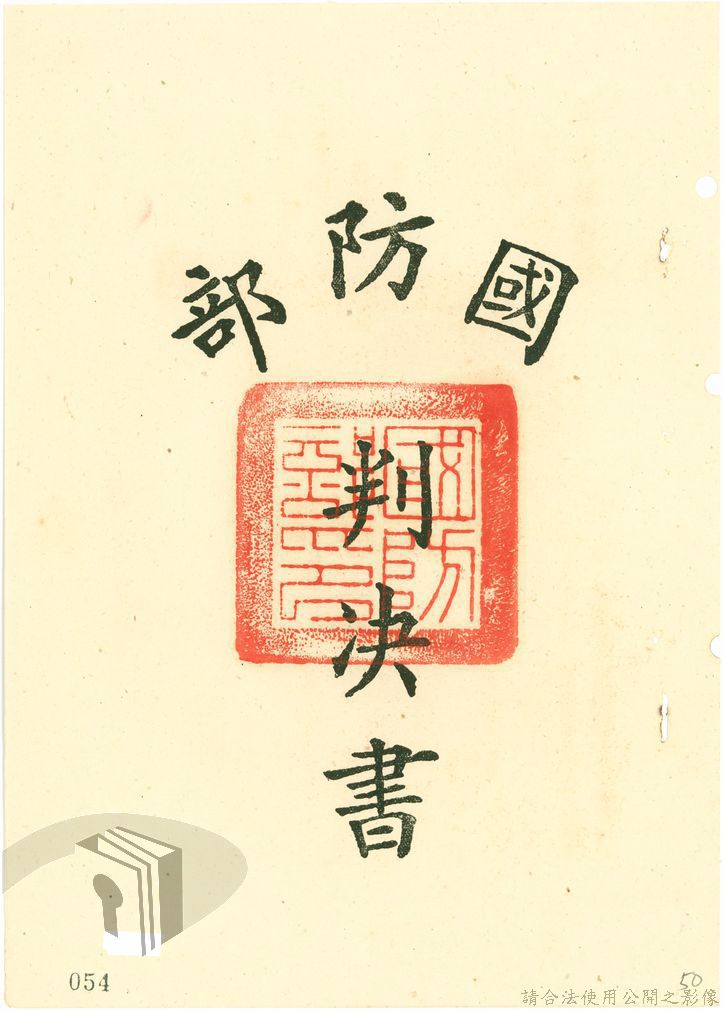 國防部
國防部印
判決書
054
50
請合法使用公開之影像